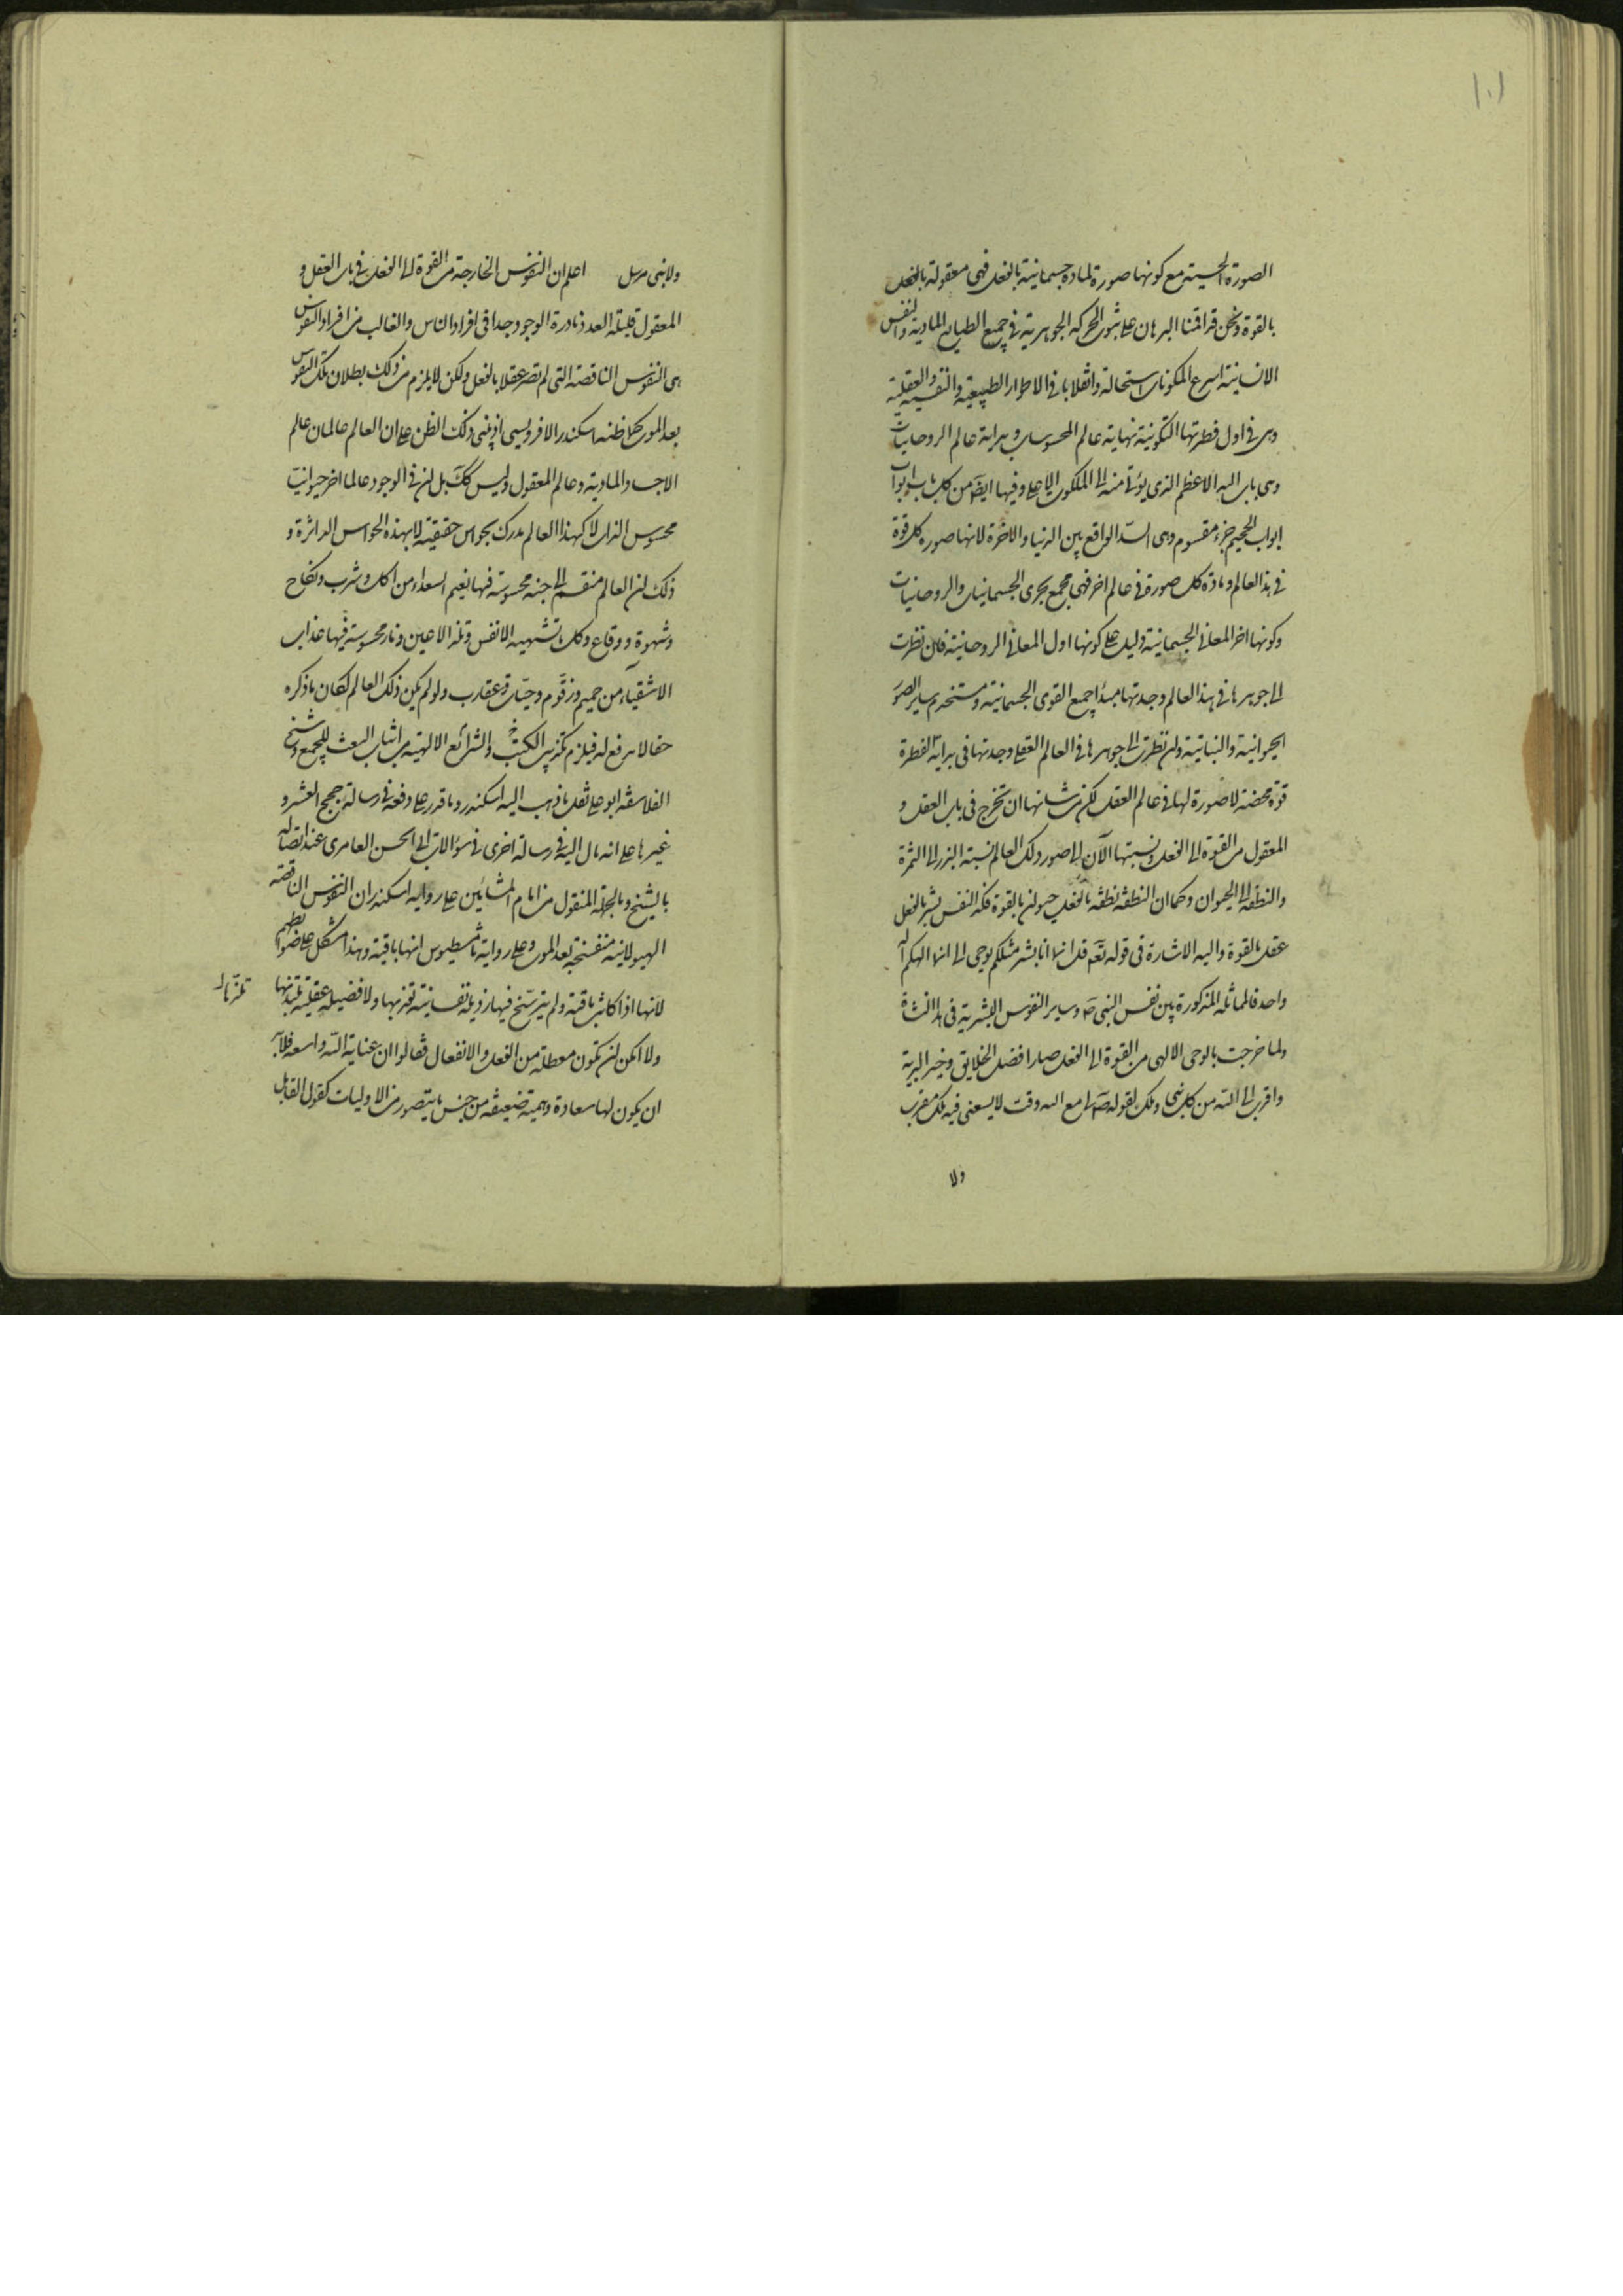 ١٠١
الصورة الحسية مع كونها صورة لمادة جسمانية بالفعل فهى معقولة بالفعل
بالقوة ونحن قد اقمنا البرهان على ثبوت الحركة الجوهرية فى جميع الطبايع المادية والنفس
الانسانية اسرع المكونات استحالة وانقلابا فى الاطوار الطبيعية والنفسية والعقلية
وهى فى اول فطرتها التكونية نهاية عالم المحسوسات وبداية عالم الروحانيات
وهى باب الله الاعظم الذى يؤتى منه الى الملكوت الاعلى وفيها ايضا من كل باب من ابواب
ابواب الجحيم جزء مقسوم وهى السد الواقع بين الدنيا والاخرة لانها صورة كل قوة
فى هذا العالم ومادة كل صورة فى عالم اخر فهى مجمع بحرى الجسمانيات والروحانيات
وكونها اخر المعانى الجسمانية دليل على كونها اول المعانى الروحانية فان نظرت
الى جوهرها فى هذا العالم وجدتها مبدأ جميع القوى الجسمانية ومستخدم ساير الصور
الحيوانية والنباتية وان نظرت الى جوهرها فى العالم العقلى وجدتها فى بداية الفطرة
قوة محضة لا صورة لها فى عالم العقل لكن من شانها ان تخرج فى باب العقل و
المعقول من القوة الى الفعل ونسبتها الآن الى صور ذلك العالم نسبة البذر الى الثمرة
والنطفة الى الحيوان وكما ان النطفة نطفة بالفعل حيوان بالقوة فكذا النفس بشر بالفعل
عقل بالقوة واليه الاشارة فى قوله تعم قل انما انا بشر مثلكم يوحى الى انما الهكم اله
واحد فالمماثلة المذكورة بين نفس النبى ص وساير النفوس البشرية فى هذا النشاة
ولما خرجت بالوحى الالهى من القوة الى الفعل صار افضل الخلايق وخير البرية
واقرب الى الله من كل نبى وملك لقوله ص لى مع الله وقت لا يسعنى فيه ملك مقرب
ولا
ولا نبى مرسل اعلم ان النفوس الخارجة من القوة الى الفعل فى باب العقل و
المعقول قليلة العدد نادرة الوجود جدا فى افراد الناس والغالب من افراد النفوس
هى النفوس الناقصة التى لم تصر عقلا بالفعل ولكن لا يلزم من ذلك بطلان تلك النفوس
بعد الموت كما ظنه اسكندر الافروديسى اذ مبنى ذلك الظن على ان العالم عالمان عالم
الاجساد المادية وعالم المعقول وليس كك بل ان فى الوجود عالما اخر حيوانيا
محسوس الذات لا كهذا العالم يدرك بحواس حقيقية لا بهذه الحواس الداثرة و
ذلك ان العالم منقسم الى جنة محسوسة فيها نعيم السعداء من اكل وشرب ونكاح
وشهوة ووقاع وكل ما تشتهيه الانفس وتلذ الاعين ونار محسوسة فيها عذاب
الاشقياء من حميم وزقوم وحيات وعقارب ولو لم يكن ذلك العالم لكان ما ذكره
حقا لا مدفع له فيلزم تكذيب الكتب والشرائع الالهية من اثبات البعث للجميع وشيخ
الفلاسفة ابو على نقل ما ذهب اليه اسكندر وما قدر على دفعه فى رسالة حجج العشر و
غيرها على انه مال اليه فى رسالة اخرى فى سؤالات ابى الحسن العامرى عند اتصاله
بالشيخ وبالجملة المنقول من امام المشائين على رواية اسكندر ان النفوس الناقصة
الهيولانية منفسخة بعد الموت وعلى رواية ثامسطيوس انها باقية وهذا مشكل على ضوابطهم
لانها اذا كانت باقية ولم يترسخ فيها رذيلة نفسانية تعذبها ولا فضيلة عقلية تلذذها
ولا امكن ان تكون معطلة من الفعل والانفعال فقالوا ان عناية الله واسعة فلا بد
ان يكون لها سعادة وهمية ضعيفة من جنس ما يتصور من الاوليات كقول القايل